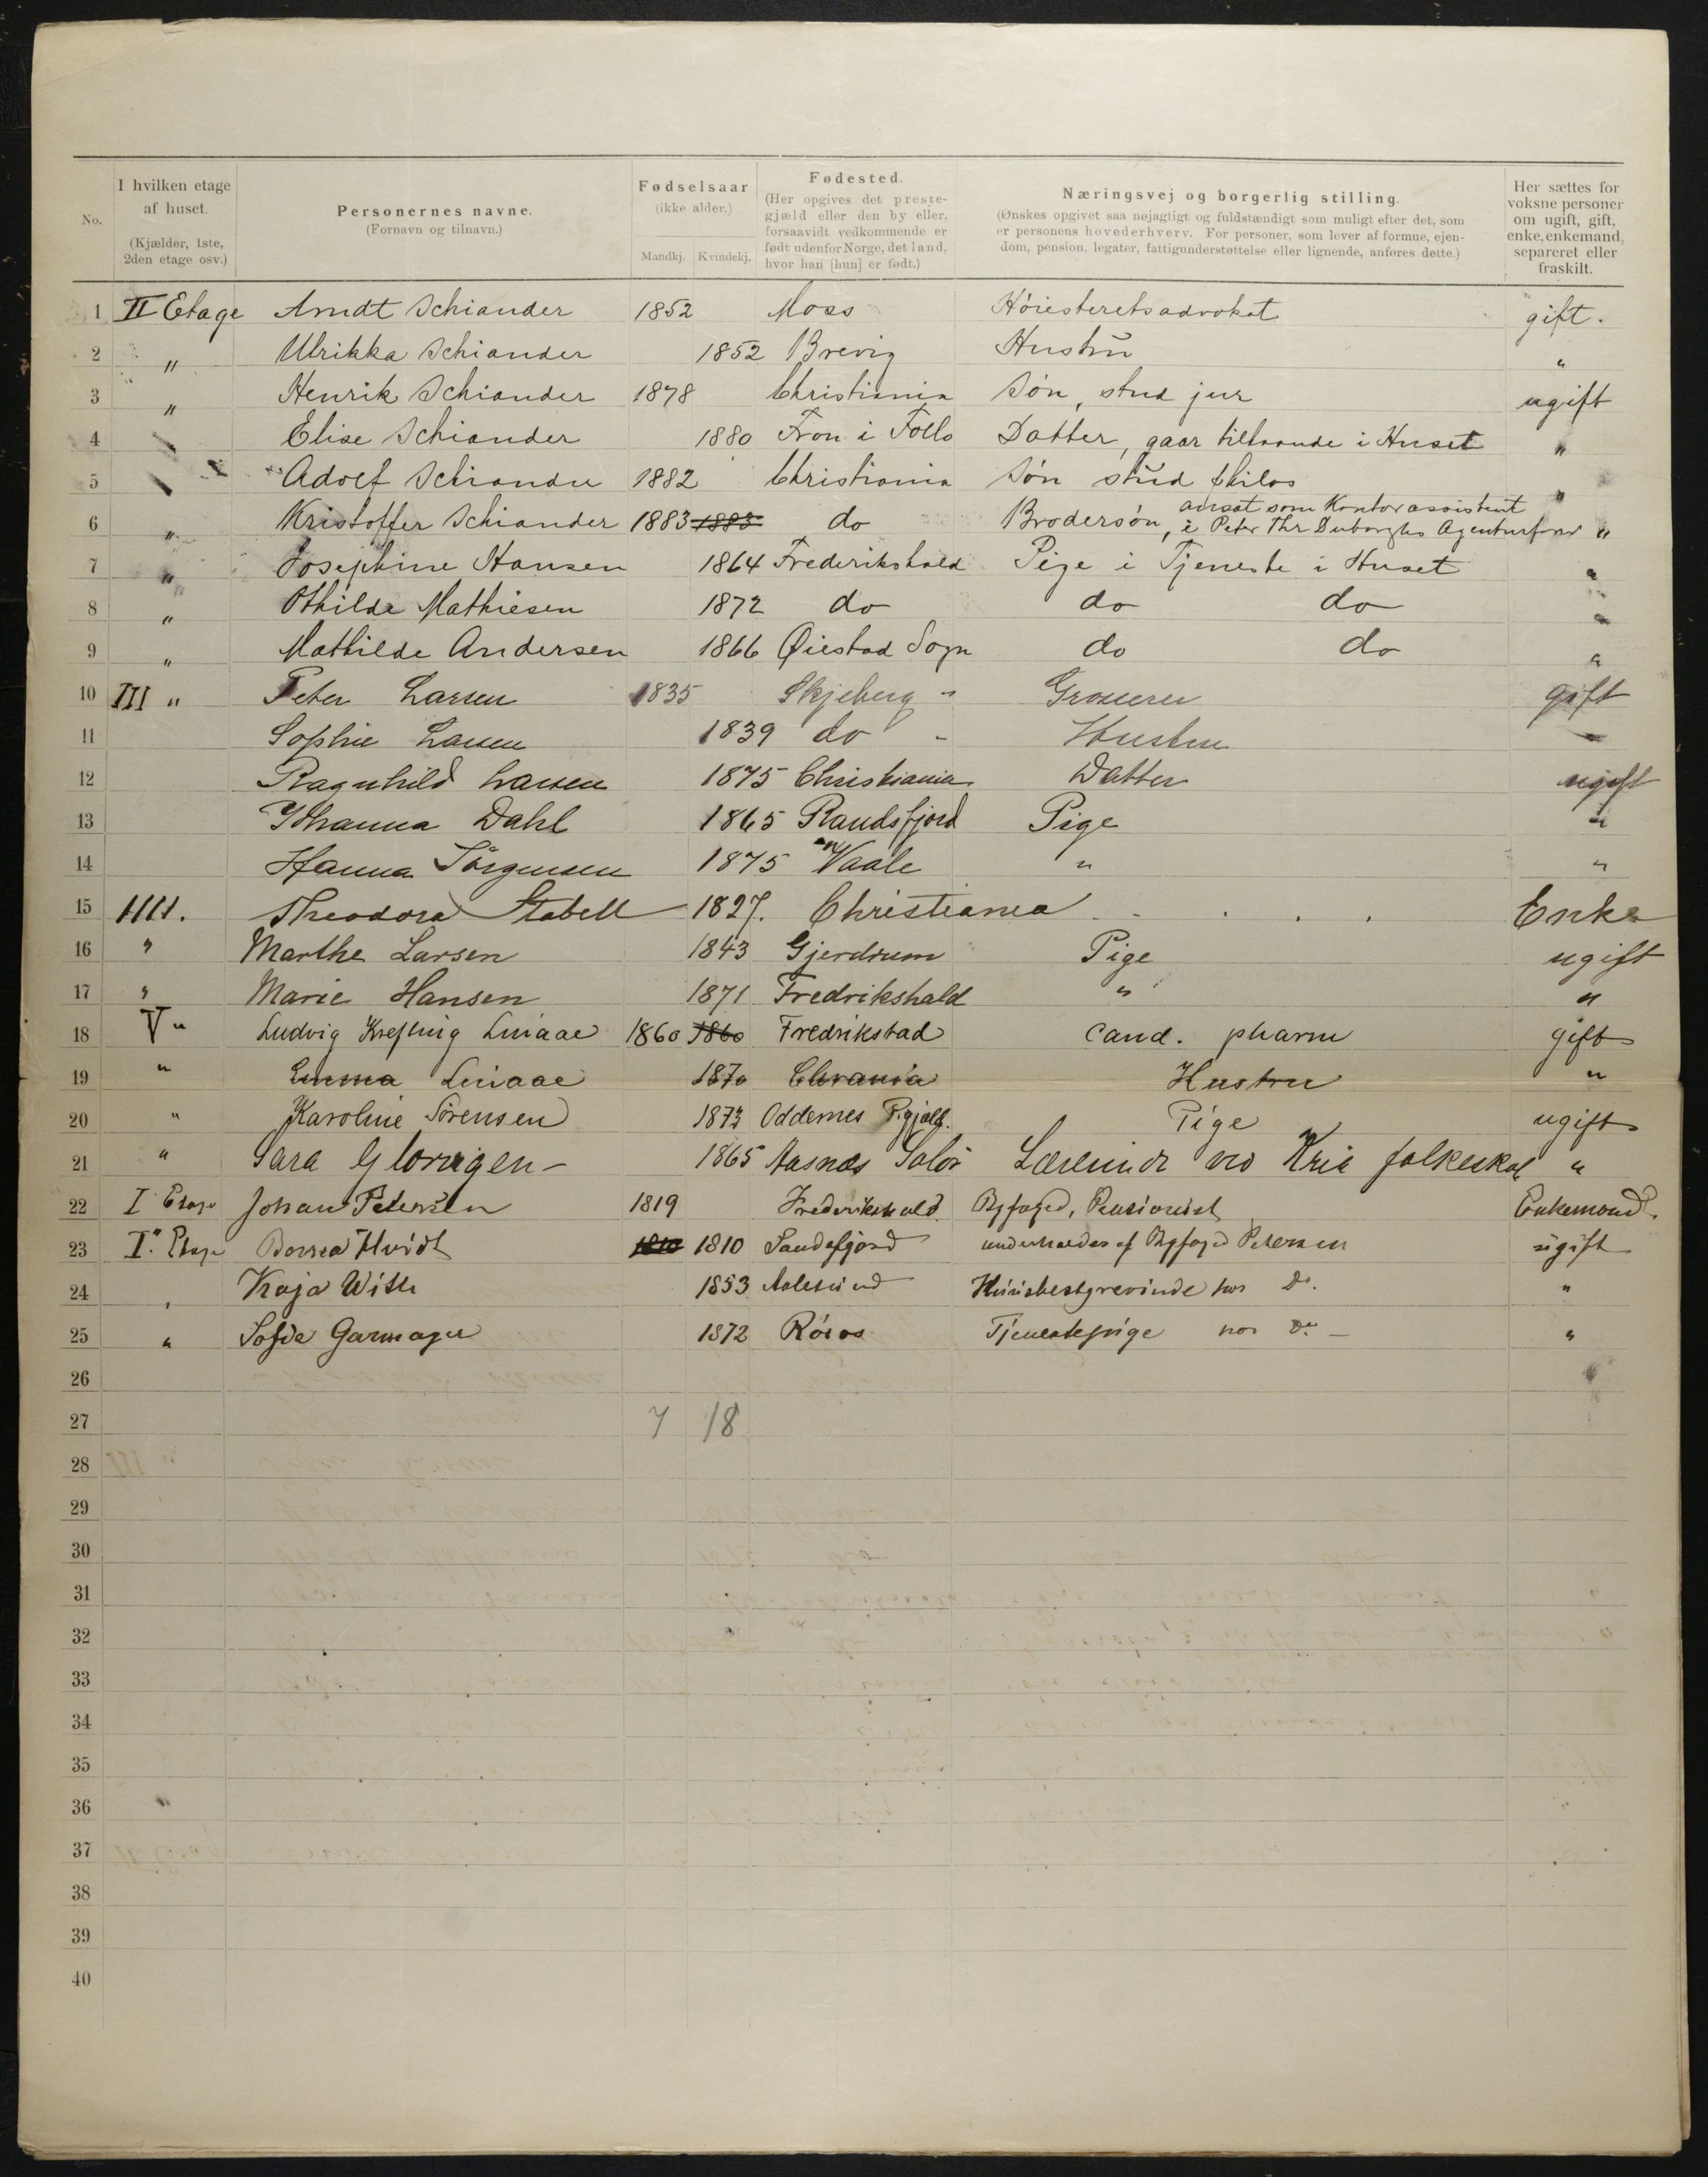 No.
I hvilken etage af huset. (Kjælder, 1ste, 2den etage osv.)
Personernes navne. (Fornavn og tilnavn.)
Fødselsaar (ikke alder.) Mandkj. Kvindekj.
Fødested. (Her opgives det prestegjæld eller den by eller, forsaavidt vedkommende er født udenfor Norge, det land, hvor han [hun] er født.)
Næringsvej og borgerlig stilling. (Ønskes opgivet saa nøjagtigt og fuldstændigt som muligt efter det, som er personens hovederhverv. For personer, som lever af formue, ejendom, pension, legater, fattigunderstøttelse eller lignende, anføres dette.)
Her sættes for voksne personer om ugift, gift, enke, enkemand, separeret eller fraskilt.
1 II Etage Arndt Schiander 1852 Moss Høiesteretsadvokat gift.
2 " Ulrikka Schiander 1852 Brevig Hustru "
3 " Henrik Schiander 1878 Christiania Søn, stud jur ugift
4 " Elise Schiander 1880 Fron i Follo Datter, gaar tilhaande i Huset "
5 " Adolf Schiander 1882 Christiania Søn stud philos "
6 " Kristoffer Schiander 1883 1883 do Brodersøn, ansat som Kontorassistent i Peter Thr Duborghs Agenturforr "
7 " Josephine Hansen 1864 Frederikshald Pige i Tjeneste i Huset "
8 " Othilde Mathiesen 1872 do do do "
9 " Mathilde Andersen 1866 Øiestad Sogn do do "
10 III " Peter Larsen 1835 Skjeberg " Grosserer gift
11 Sophie Larsen 1839 do " Hustru "
12 Ragnhild Larsen 1875 Christiania Datter ugift
13 Johanna Dahl 1865 Randsfjord Pige "
14 Hanna Jørgensen 1875 Vaale " "
15 IIII. Theodora Stabell 1827. Christiania Enke
16 " Marthe Larsen 1843 Gjerdrum Pige ugift
17 " Marie Hansen 1871 Fredrikshald " "
18 V " Ludvig Krefting Liniaae 1860 1860 Fredrikstad Cand. pharm gift
19 " Emma Liniaae 1870 Chrania Hustru "
20 " Karoline Sørensen 1873 Oddernes P.gjæld. Pige ugift
21 " Sara Glorvigen - 1865 Aasnæs Solør Lærerinde ved Kria folkeskol "
22 I Etage Johan Petersen 1819 Frederikshald Byfoged, Pensionist Enkemand.
23 I. Etage Hvidt 1810 1810 Sandefjord underholdes af Byfoged Petersen ugift
24 " Kaja With 1853 Aalesund Huusbestyrerinde hos Do. "
25 " Sofie Garmager 1872 Røros Tjenestepige hos Do - "
26
27 7 18
28
29
30
31
32
33
34
35
36 "
37
38
39
40